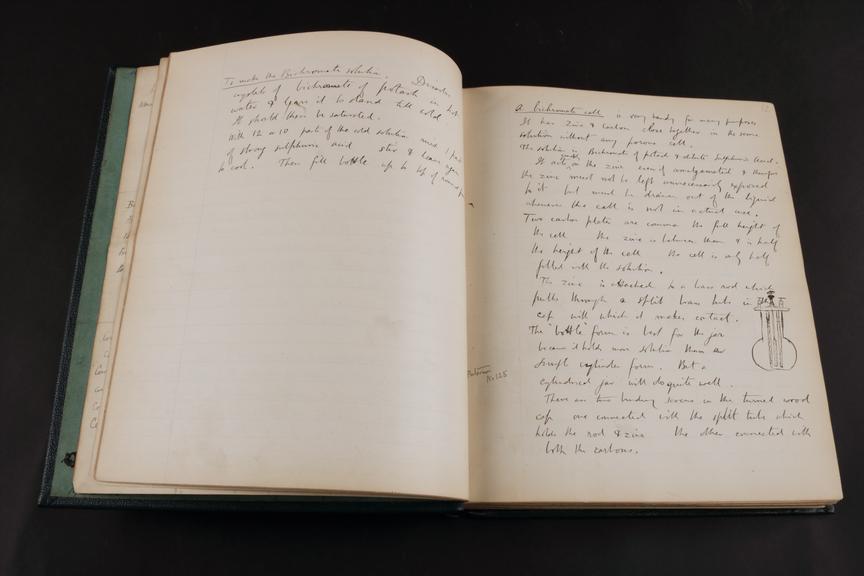 To make the Bichromate solution. Dissolve
crystals of bichromate of potash in hot
water & leave it to stand till cold.
It should then be saturated.
With 12 or 10 parts of the cold solution mix 1 part
of strong sulphuric acid stir & leave again
to cool. Then fill bottle up to top of round
A bichromate cell is very handy for many purposes
It has zinc & carbon close together in the same
solution without any porous cell.
The solution is Bichromate of potash & dilute Sulphuric Acid.
It acts on the zinc even if amalgamated & therefore
the zinc must not be left unnecessarily exposed
to it but must be drawn out of the liquid
whenever the cell is not in actual use.
Two carbon plates are commonly the full height of
the cell the zinc is between them & is half
the height of the cell the cell is only half
filled with the solution.
The zinc is attached to a brass rod which
pulls through a split brass tube in the
cap with which it makes contact.
The "bottle" form is best for the jar
because it holds more solution than the
straight cylinder form. But a
cylindrical jar will do quite well.
There are two binding screws in the turned wood
cap one connected with the split tube which
holds the rod & zinc the other connected with
both the carbons.
No 125